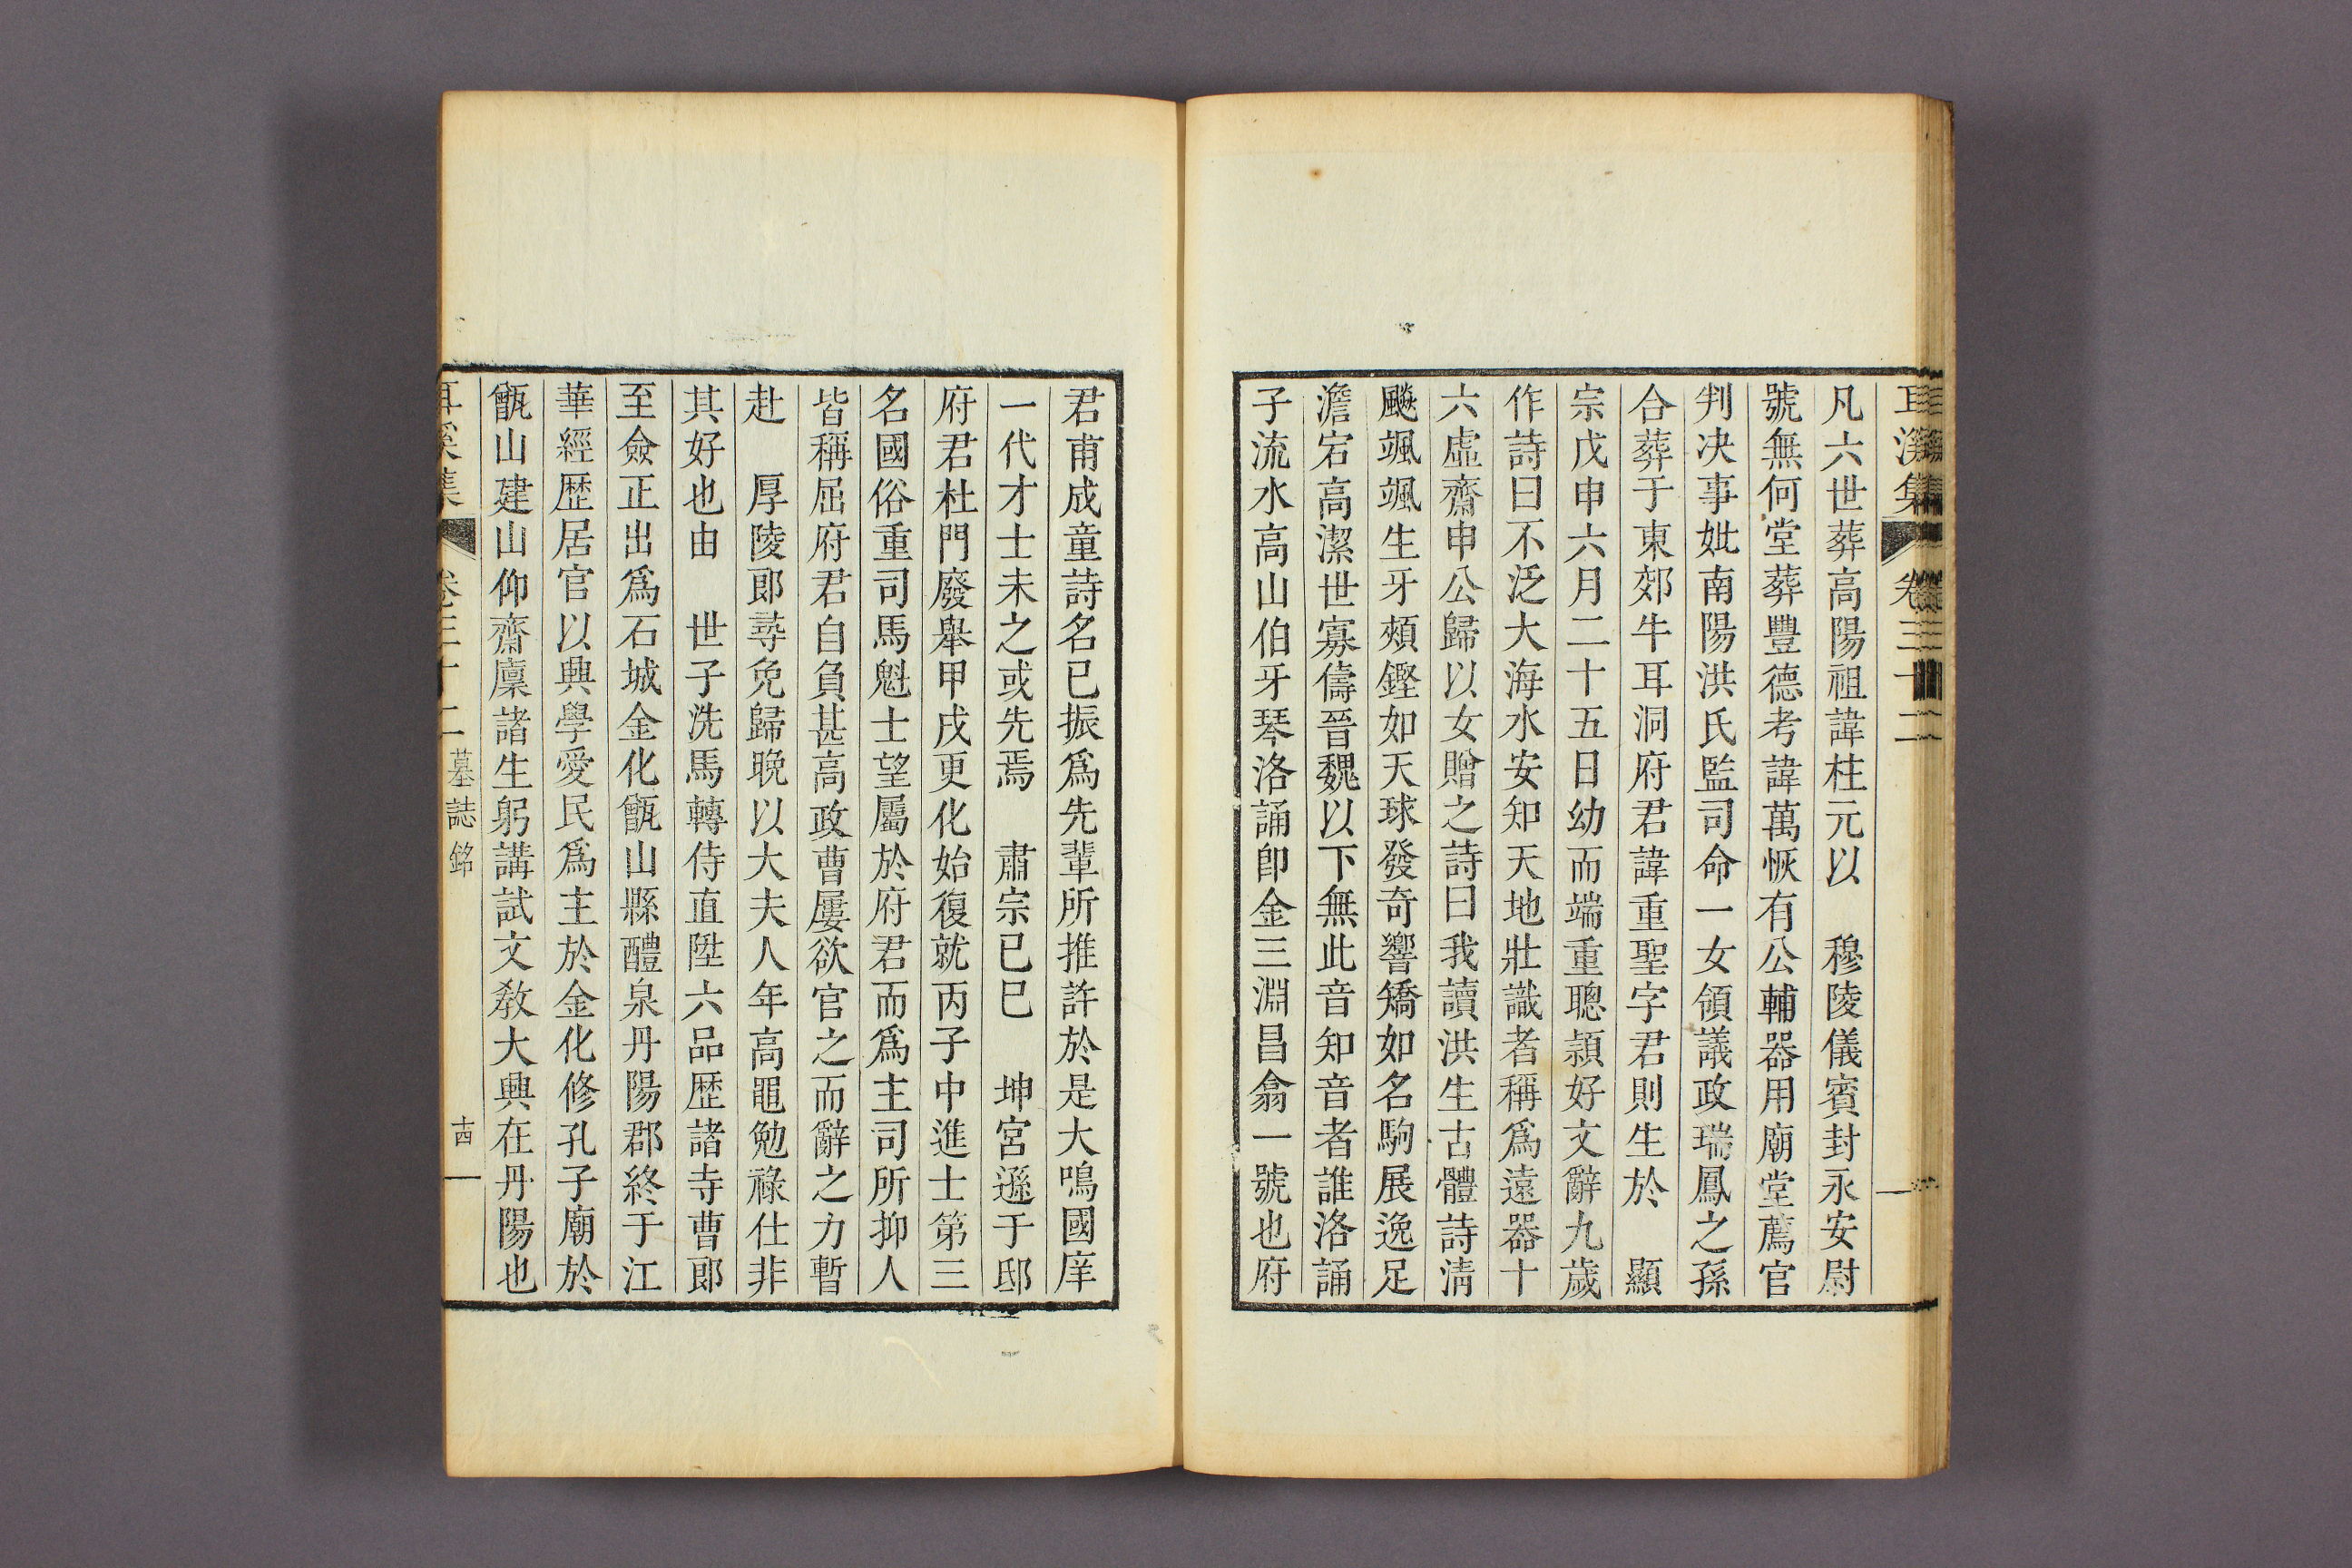 耳溪集 卷三十二
凡六世葬高陽祖諱柱元以 穆陵儀賓封永安尉
號無何堂葬豐德考諱萬恢有公輔器用廟堂薦官
判决事妣南陽洪氏監司命一女領議政瑞鳳之孫
合葬于東郊牛耳洞府君諱重聖字君則生於 顯
宗戊申六月二十五日幼而端重聰頴好文辭九歲
作詩曰不泛大海水安知天地壯識者稱爲遠器十
六虛齋申公歸以女贈之詩曰我讀洪生古體詩淸
飈颯颯生牙頰鏗如天球發奇響矯如名駒展逸足
澹宕高潔世寡儔晉魏以下無此音知音者誰洛誦
子流水高山伯牙琴洛誦卽金三淵昌翕一號也府
君甫成童詩名已振爲先輩所推許於是大鳴國庠
一代才士未之或先焉 肅宗己巳 坤宮遜于邸
府君杜門廢舉甲戌更化始復就丙子中進士第三
名國俗重司馬魁士望屬於府君而爲主司所抑人
皆稱屈府君自負甚高政曹屢欲官之而辭之力暫
赴 厚陵郞尋免歸晩以大夫人年高黽勉祿仕非
其好也由 世子洗馬轉侍直陞六品歷諸寺曹郞
至僉正出爲石城金化甑山縣醴泉丹陽郡終于江
華經歷居官以興學愛民爲主於金化修孔子廟於
甑山建山仰齋廩諸生躬講試文敎大興在丹陽也
耳溪集 卷三十二 墓誌銘 十四